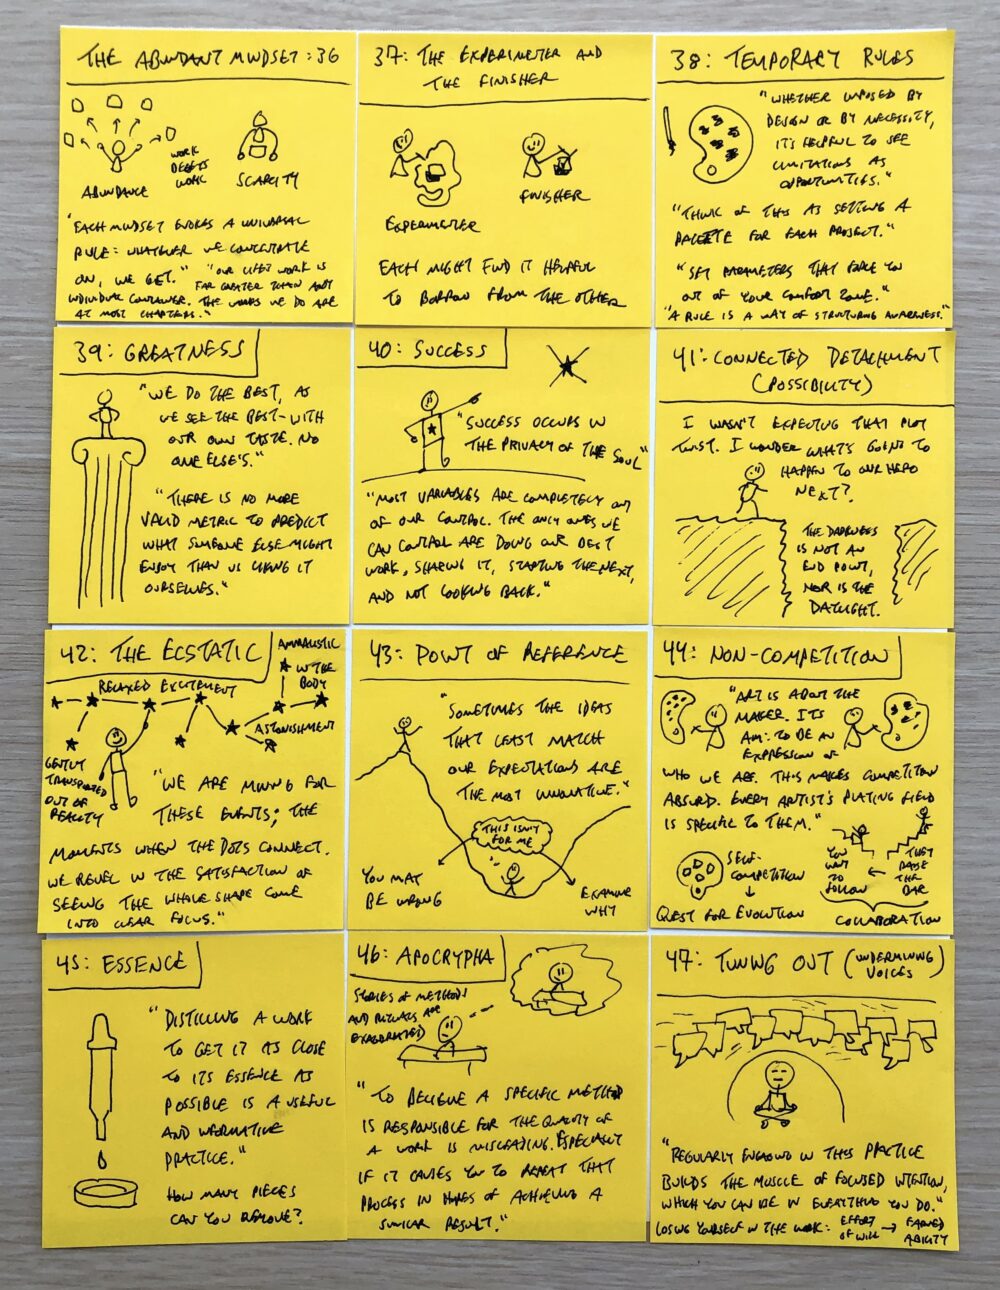 THE ABUNDANT MINDSET: 36
ABUNDANCE
WORK
BEGETS
WORK
SCARCITY
"EACH MINDSET EVOKES A UNIVERSAL
RULE: WHATEVER WE CONCENTRATE
ON, WE GET." "OUR LIFE'S WORK IS
FAR GREATER THAN ANY
INDIVIDUAL CONTAINER. THE WORKS WE DO ARE
AT MOST CHAPTERS."
37: THE EXPERIMENTER AND
THE FINISHER
EXPERIMENTER
FINISHER
EACH MIGHT FIND IT HELPFUL
TO BORROW FROM THE OTHER
38: TEMPORARY RULES
"WHETHER IMPOSED BY
DESIGN OR BY NECESSITY,
IT'S HELPFUL TO SEE
LIMITATIONS AS
OPPORTUNITIES."
"THINK OF THIS AS SETTING A
PALETTE FOR EACH PROJECT."
"SET PARAMETERS THAT FORCE YOU
OUT OF YOUR COMFORT ZONE."
"A RULE IS A WAY OF STRUCTURING AWARENESS."
39: GREATNESS
"WE DO THE BEST, AS
WE SEE THE BEST - WITH
OUR OWN TASTE. NO
ONE ELSE'S."
"THERE IS NO MORE
VALID METRIC TO PREDICT
WHAT SOMEONE ELSE MIGHT
ENJOY THAN US LIKING IT
OURSELVES."
40: SUCCESS
"SUCCESS OCCURS IN
THE PRIVACY OF THE SOUL"
"MOST VARIABLES ARE COMPLETELY OUT
OF OUR CONTROL. THE ONLY ONES WE
CAN CONTROL ARE DOING OUR BEST
WORK, SHARING IT, STARTING THE NEXT,
AND NOT LOOKING BACK."
41: CONNECTED DETACHMENT
(POSSIBILITY)
I WASN'T EXPECTING THAT PLOT
TWIST. I WONDER WHAT'S GOING TO
HAPPEN TO OUR HERO
NEXT?
THE DARKNESS
IS NOT AN
END POINT,
NOR IS THE
DAYLIGHT.
42: THE ECSTATIC
ANIMALISTIC
IN THE
BODY
RELAXED EXCITEMENT
ASTONISHMENT
GENTLY
TRANSPORTED
OUT OF
REALITY
"WE ARE MINING FOR
THESE EVENTS; THE
MOMENTS WHEN THE DOTS CONNECT.
WE REVEL IN THE SATISFACTION OF
SEEING THE WHOLE SHAPE COME
INTO CLEAR FOCUS."
43: POINT OF REFERENCE
"SOMETIMES THE IDEAS
THAT LEAST MATCH
OUR EXPECTATIONS ARE
THE MOST INNOVATIVE."
THIS ISN'T
FOR ME
YOU MAY
BE WRONG
EXAMINE
WHY
44: NON-COMPETITION
"ART IS ABOUT THE
MAKER. ITS
AIM: TO BE AN
EXPRESSION OF
WHO WE ARE. THIS MAKES COMPETITION
ABSURD. EVERY ARTIST'S PLAYING FIELD
IS SPECIFIC TO THEM."
SELF-
COMPETITION
↓
QUEST FOR EVOLUTION
YOU
WANT
TO
FOLLOW
←
THEY
RAISE
THE
BAR
COLLABORATION
45: ESSENCE
"DISTILLING A WORK
TO GET IT AS CLOSE
TO ITS ESSENCE AS
POSSIBLE IS A USEFUL
AND INFORMATIVE
PRACTICE."
HOW MANY PIECES
CAN YOU REMOVE?
46: APOCRYPHA
STORIES OF METHODS
AND RITUALS ARE
EXAGGERATED
"TO BELIEVE A SPECIFIC METHOD
IS RESPONSIBLE FOR THE QUALITY OF
A WORK IS MISLEADING. ESPECIALLY
IF IT CAUSES YOU TO REPEAT THAT
PROCESS IN HOPES OF ACHIEVING A
SIMILAR RESULT."
47: TUNING OUT (UNDERMINING
VOICES)
"REGULARLY ENGAGING IN THIS PRACTICE
BUILDS THE MUSCLE OF FOCUSED INTENTION,
WHICH YOU CAN USE IN EVERYTHING YOU DO."
LOSING YOURSELF IN THE WORK: EFFORT
OF WILL → EARNED
ABILITY